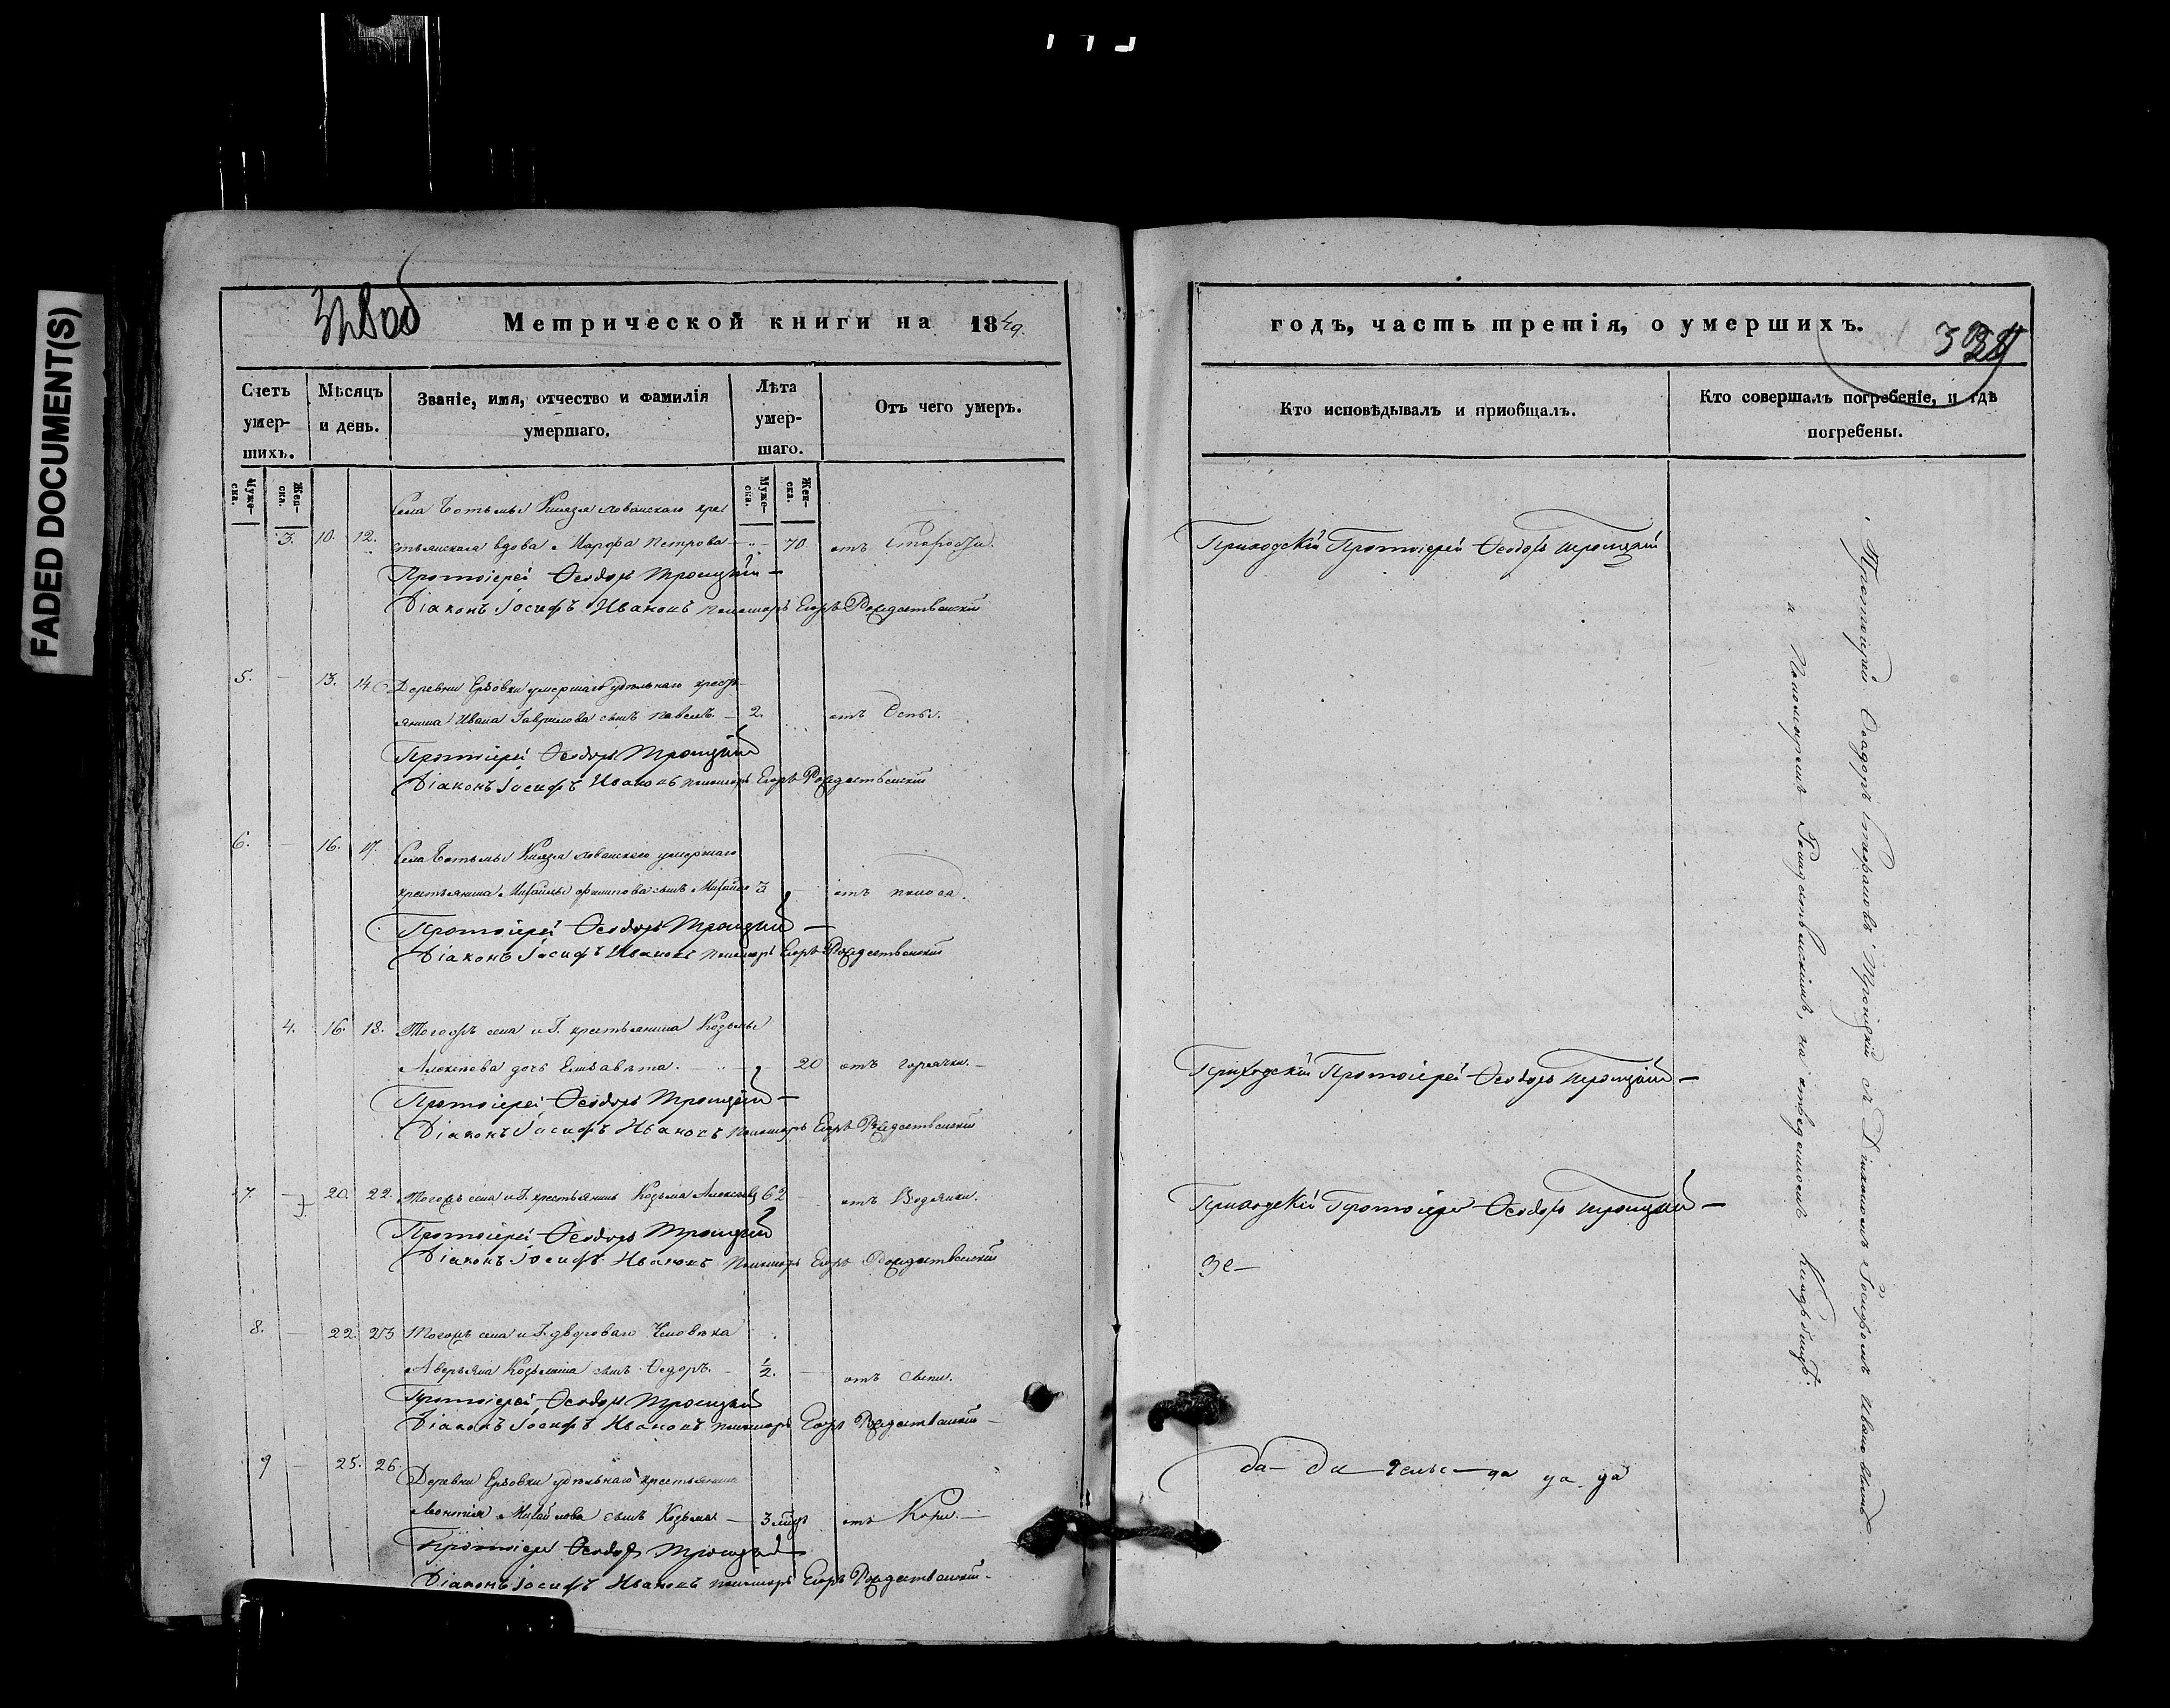 FADED DOCUMENT(S)
Метрической книги на 1849.
Счетъ умер-шихъ.
Мѣсяцъ и день.
Званіе, имя, отчество и фамилія умершаго.
Лѣта умер-шаго.
Отъ чего умеръ.
Муже-ска.
Жен-ска.
Муже-ска.
Жен-ска.
Села Ботьмы Князя крес
3. 10. 12. стьянская вдова Марфа Петрова — „ — 70. отъ Старости.
Протоіерей Ѳеодоръ Троицкій —
Діаконъ Іосифъ Ивановъ пономарь Егоръ Рождественскій
5. — 13. 14 Деревни умершаго удѣльнаго кресть-
янина Ивана Гаврилова сынъ Павелъ — 2. отъ Оспы.
Протоіерей Ѳеодоръ Троицкій
Діаконъ Іосифъ Ивановъ пономарь Егоръ Рождественскій
6. — 16. 17. Села Ботьмы Князя умершаго
крестьянина Михайлы Филипова сынъ Михайло 3 — отъ поноса.
Протоіерей Ѳеодоръ Троицкій —
Діаконъ Іосифъ Ивановъ пономарь Егоръ Рождественскій
4. 16. 18. Тогожъ села и Г. крестьянина Козьмы
Алексѣева дочь Елизавета. — 20 отъ горячки. —
Протоіерей Ѳеодоръ Троицкій —
Діаконъ Іосифъ Ивановъ пономарь Егоръ Рождественскій
7. — 20. 22. Тогожъ села и Г. крестьянинъ Козьма Алексѣевъ 62 — отъ Водянки.
Протоіерей Ѳеодоръ Троицкій
Діаконъ Іосифъ Ивановъ пономарь Егоръ Рождественскій
8. — 22. 23 Тогожъ села и Г. двороваго Человѣка
Аверьяна Козьмина сынъ Ѳедоръ. — 1/2. — отъ
Протоіерей Ѳеодоръ Троицкій
Діаконъ Іосифъ Ивановъ пономарь Егоръ Рождественскій —
9 — 25. 26. Деревни удѣльнаго крестьянина
Леонтія Михайлова сынъ Козьма — 3 отъ Кори. —
Протоіерей Ѳеодоръ Троицкій
Діаконъ Іосифъ Ивановъ пономарь Егоръ Рождественскій —
годъ, часть третія, о умершихъ.
Кто исповѣдывалъ и пріобщалъ.
Кто совершалъ погребеніе, и гдѣ погребены.
Приходскій Протоіерей Ѳеодоръ Троицкій
Приходскій Протоіерей Ѳеодоръ Троицкій —
Приходскій Протоіерей Ѳеодоръ Троицкій —
Протоіерей Ѳеодоръ Стефановъ Троицкій съ Діакономъ Іосифомъ Ивановымъ
и Пономаремъ Рождественскимъ, на отведенномъ кладбищѣ.